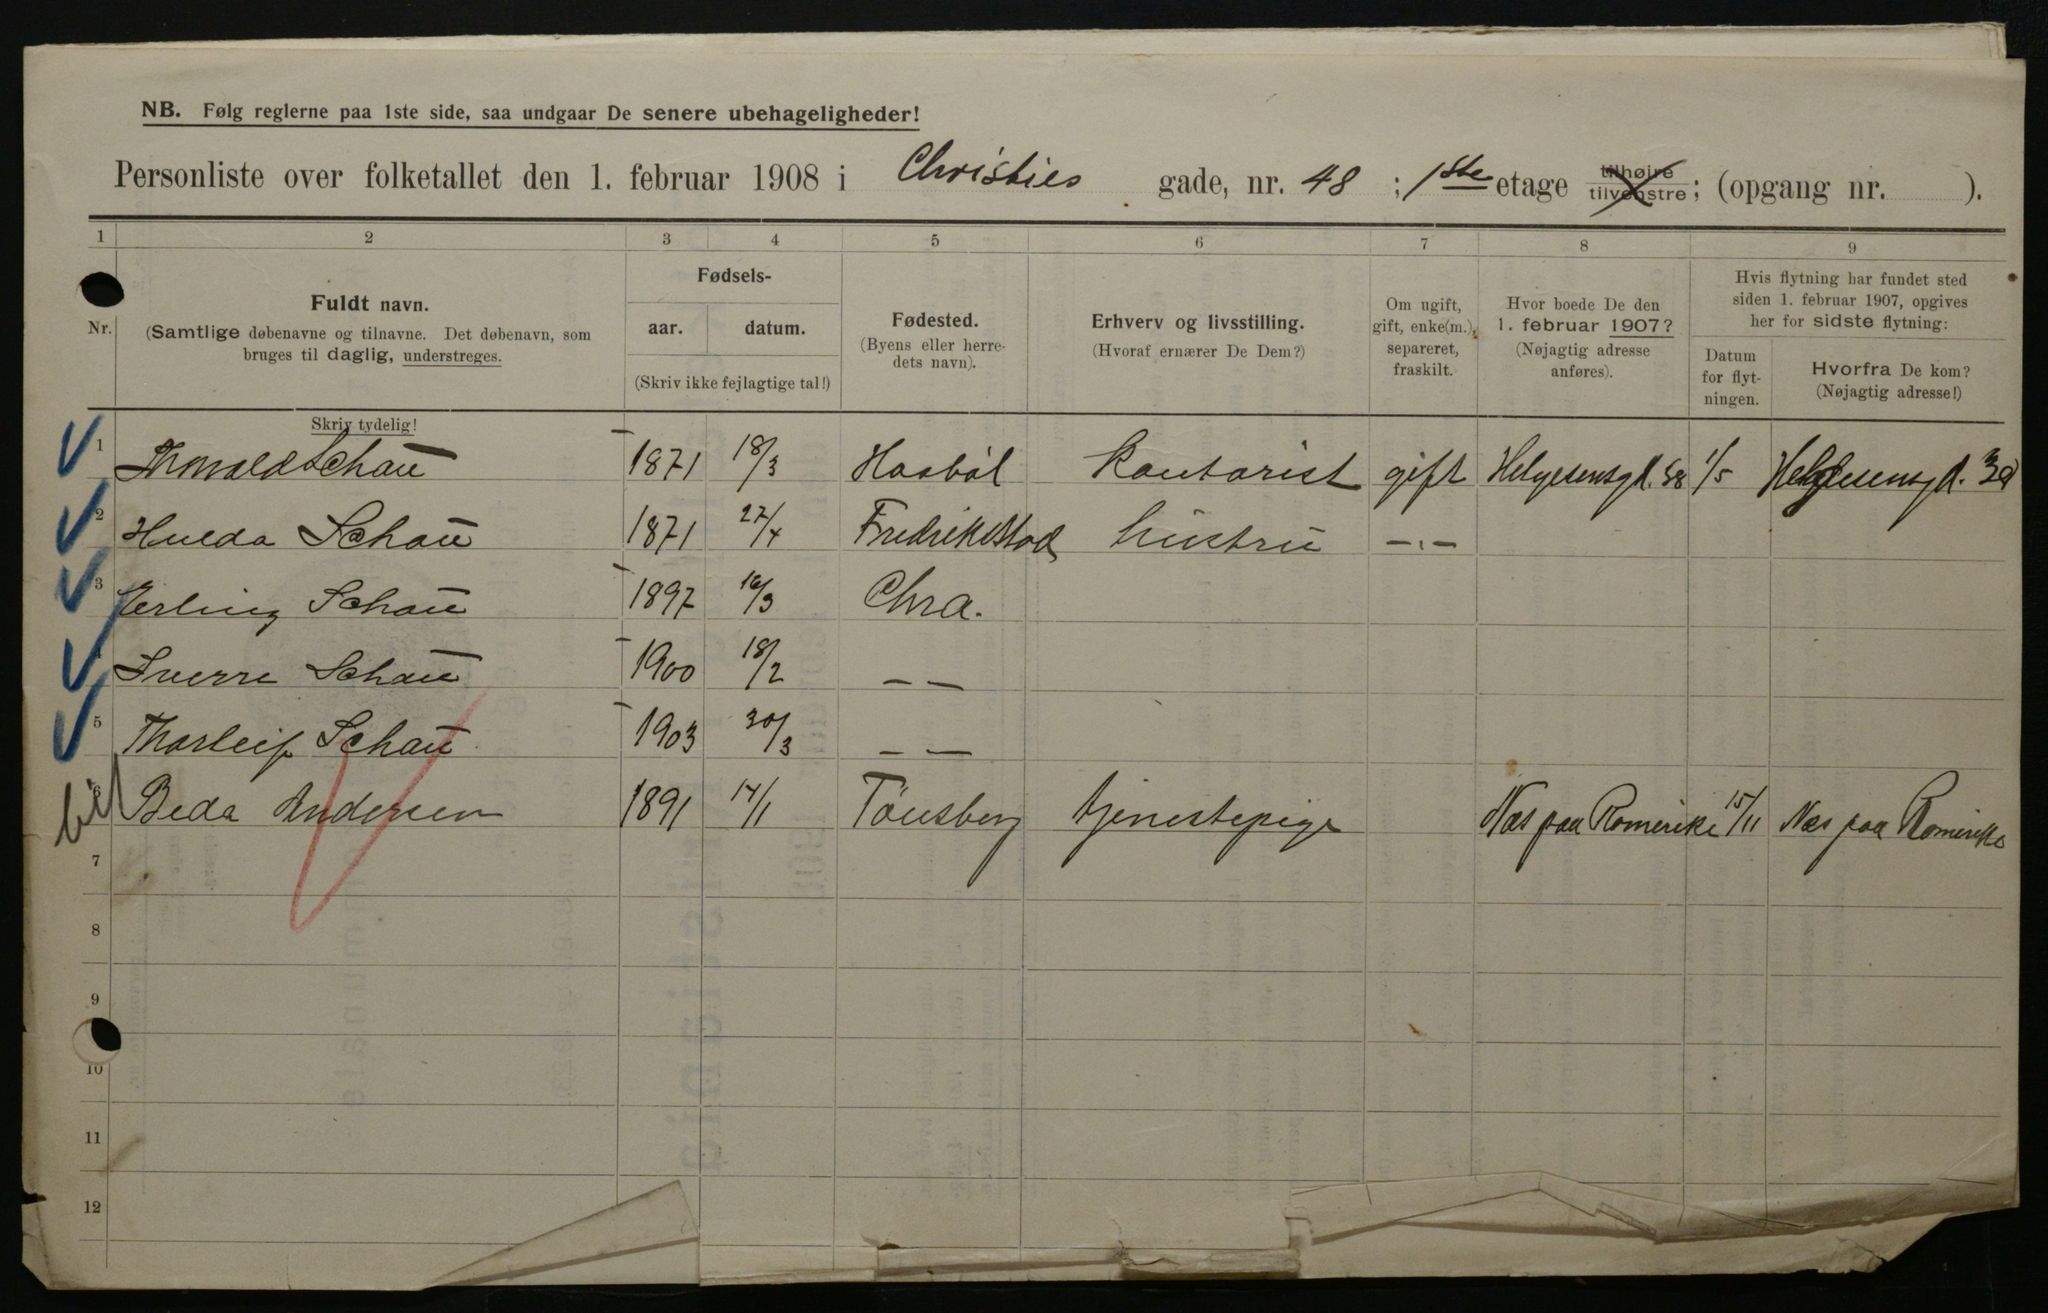 NB. Følg reglerne paa 1ste side, saa undgaar De senere ubehageligheder!
Personliste over folketallet den 1. februar 1908 i Christies gade, nr. 48 ; 1ste etage tilhøire tilvenstre; (opgang nr. ).
1 2 3 4 5 6 7 8 9
Nr.
Fuldt navn.
(Samtlige døbenavne og tilnavne. Det døbenavn, som
bruges til daglig, understreges.
Skriv tydelig!
Fødsels-
aar. datum.
(Skriv ikke fejlagtige tal!)
Fødested.
(Byens eller herre-
dets navn).
Erhverv og livsstilling.
(Hvoraf ernærer De Dem?)
Om ugift,
gift, enke(m.),
separeret,
fraskilt.
Hvor boede De den
1. februar 1907?
(Nøjagtig adresse
anføres).
Hvis flytning har fundet sted
siden 1. februar 1907, opgives
her for sidste flytning:
Datum
for flyt-
ningen.
Hvorfra De kom?
(Nøjagtig adresse!)
1 Thorvald Schau 1871 18/3 Haabøl kontorist gift Helgesensgd. 38 1/5 Helgesensgd. 38
2 Hulda Schau 1871 27/4 Fredrikstad hustru —"—
3 Erling Schau 1897 16/3 Chra.
4 Sverre Schau 1900 18/2 — —
5 Thorleif Schau 1903 30/3 — —
6 Beda Andersen 1891 14/11 Tönsberg tjenestepige Næs paa Romerike 15/11 Næs paa Romerike
7
8
9
10
11
12